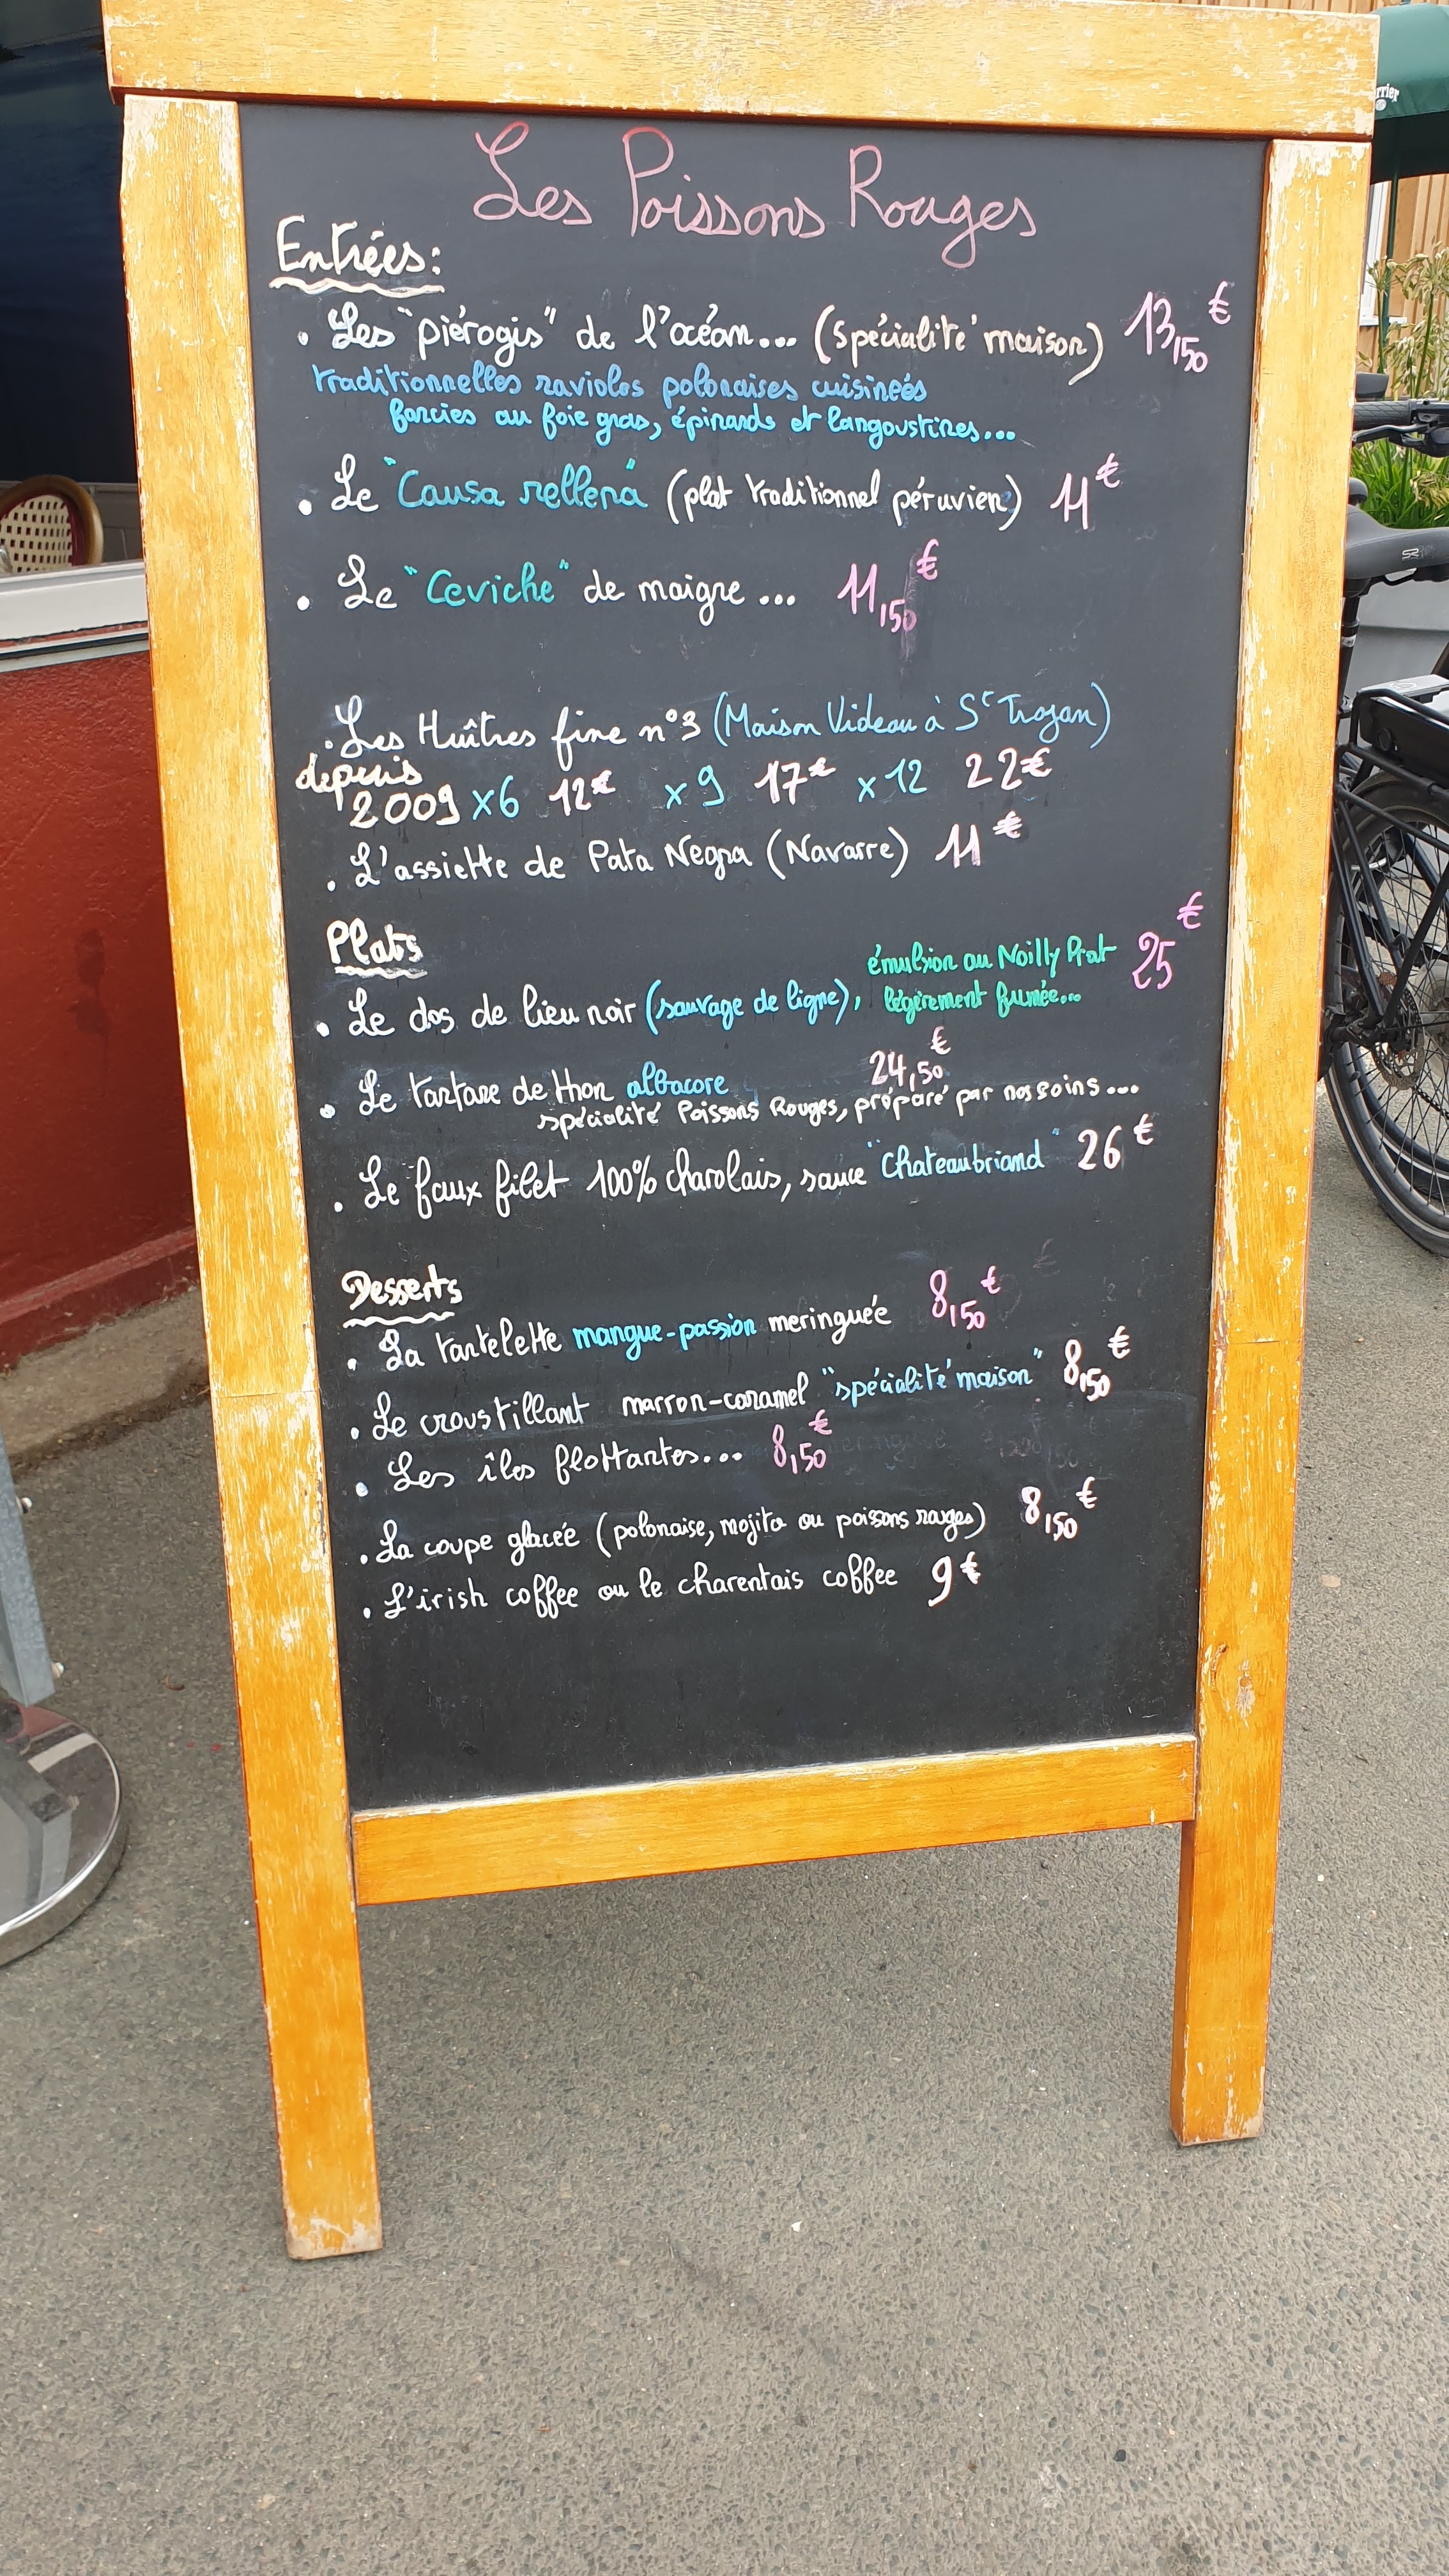 Les Poissons Rouges
Entrées:
• Les "piérogis" de l'océan... (spécialité maison) 13,50€
traditionnelles ravioles polonaises cuisineés
farcies au foie gras, épinards et langoustines...
• Le "Causa rellena" (plat traditionnel péruvien) 11€
• Le "Ceviche" de maigre ... 11,50€
• Les Huîtres fine n°3 (Maison Videau à St Trojan)
depuis
2009 x6 12€ x9 17€ x12 22€
• L'assiette de Pata Negra (Navarre) 11€
Plats
émulsion au Noilly Prat 25€
• Le dos de lieu noir (sauvage de ligne), légèrement fumée...
• Le tartare de thon albacore 24,50€
spécialité Poissons Rouges, préparé par nos soins...
• Le faux filet 100% charolais, sauce "Chateaubriand" 26€
Desserts
• La tartelette mangue-passion meringuée 8,50€
• Le croustillant marron-caramel "spécialité maison" 8,50€
• Les îles flottantes... 8,50€
• La coupe glacée (polonaise, mojito ou poissons rouges) 8,50€
• L'irish coffee ou le charentais coffee 9€